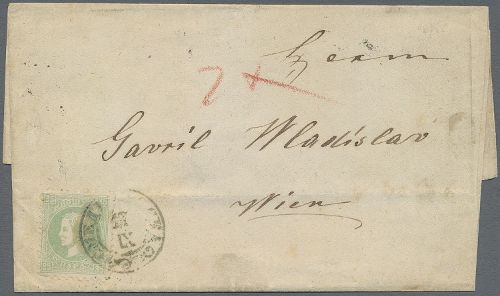 Herrn
2x
Gavril Wladislav
Wien